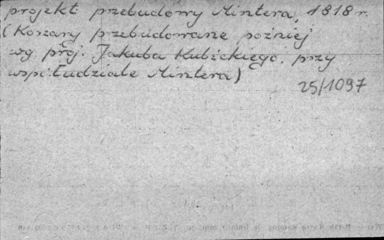 projekt przebudowy Mintera, 1818 r.
(Koszary przebudowane poźniej
wg proj. Jakuba Kubickiego, przy
współudziale Mintera)
25/1097